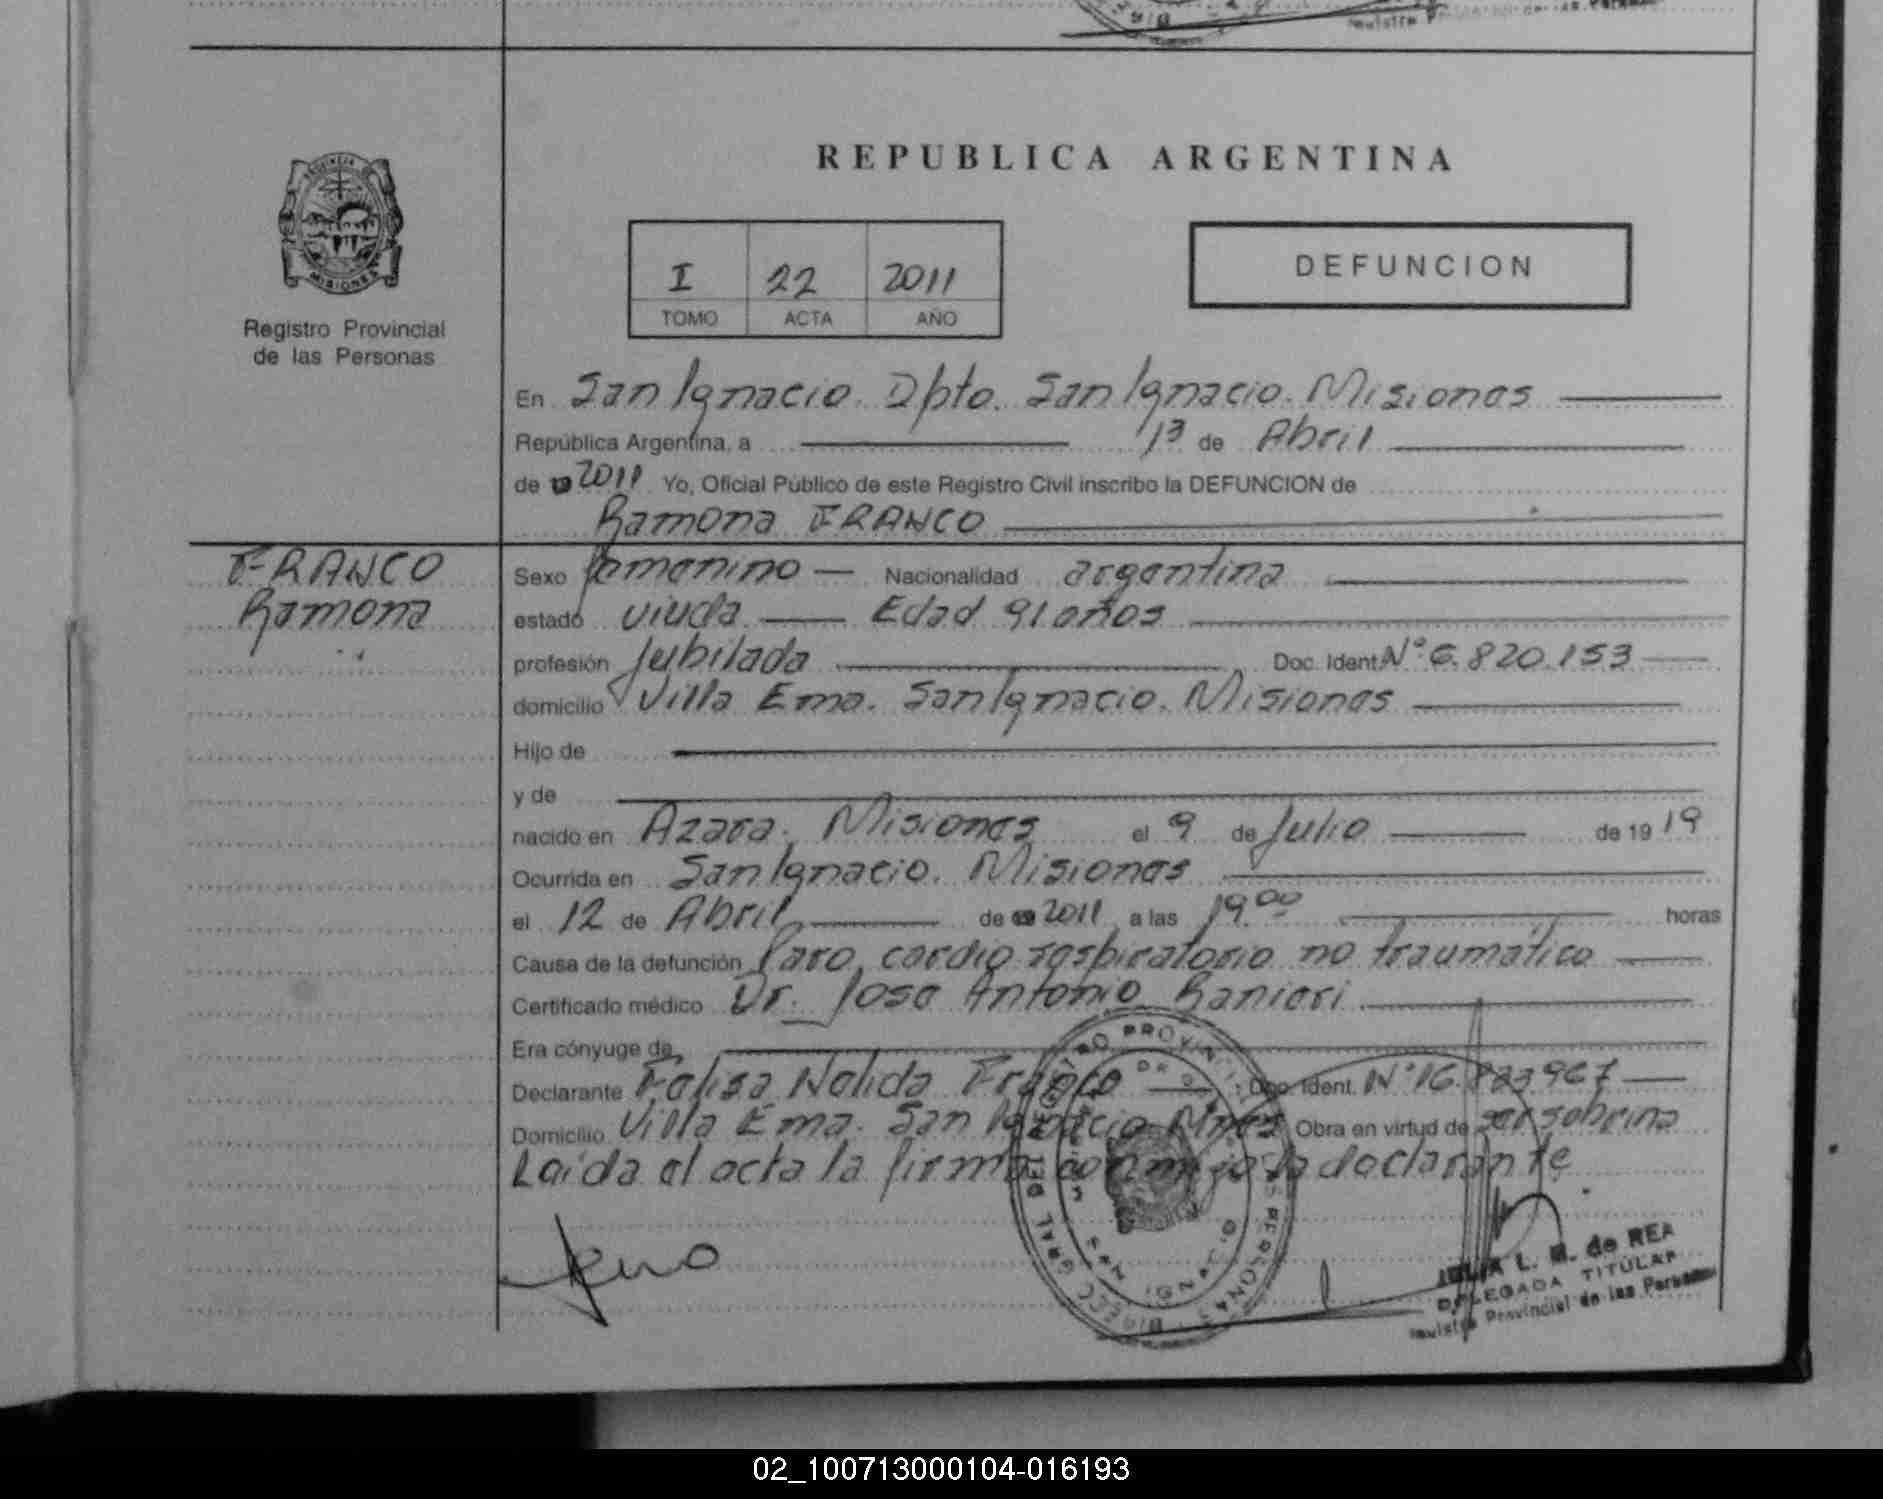 REPUBLICA ARGENTINA
PROVINCIA DE
MISIONES
Registro Provincial
de las Personas
I 22 2011
TOMO ACTA AÑO
DEFUNCION
En San Ignacio. Dpto. San Ignacio. Misiones
República Argentina, a 13 de Abril
de 2011 Yo, Oficial Público de este Registro Civil inscribo la DEFUNCION de
Ramona FRANCO
FRANCO
Ramona
Sexo femenino — Nacionalidad argentina
estado viuda — Edad 91 años
profesión Jubilada Doc. Ident. N° 6.820.153
domicilio Villa Ema. San Ignacio. Misiones
Hijo de
y de
nacido en Azara. Misiones el 9 de Julio de 19 19
Ocurrida en San Ignacio. Misiones
el 12 de Abril de 2011 a las 19.00 horas
Causa de la defunción Paro cardio respiratorio no traumático
Certificado médico Dr. Jose Antonio Ranieri
Era cónyuge de
Declarante Felisa Nelida Franco — Doc. Ident. N° 16.823967
Domicilio Villa Ema. San Ignacio Mnes Obra en virtud de ser sobrina
Leída el acta la firma conmigo la declarante
L. M. de REA
DELEGADA TITULAR
Provincial de las Personas
02_100713000104-016193